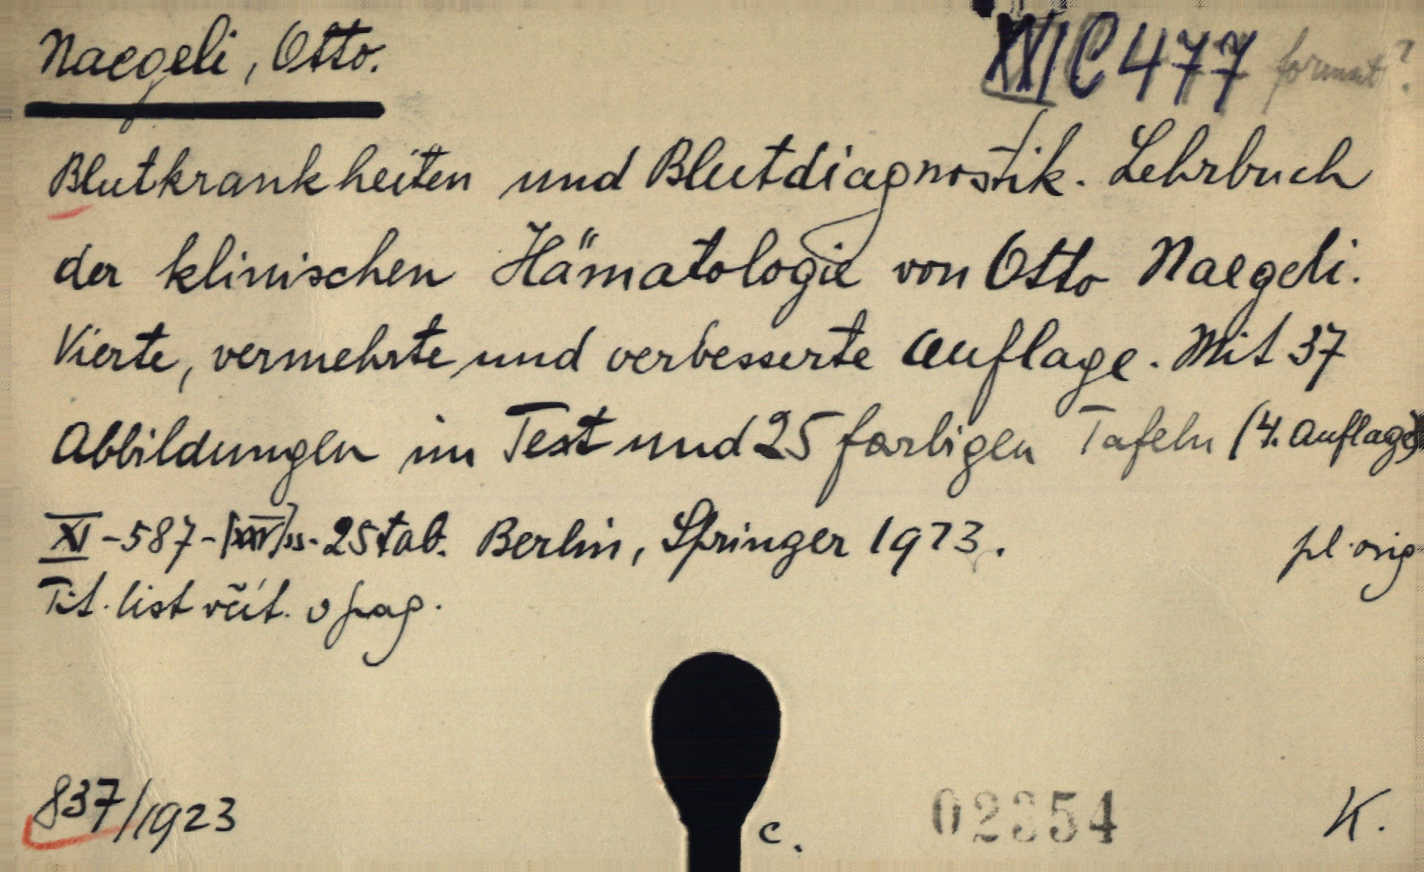 Naegeli, Otto.
XVI C 477 format?
Blutkrankheiten und Blutdiagnostik. Lehrbuch
der klinischen Hämatologie von Otto Naegeli.
Vierte, vermehrte und verbesserte Auflage. Mit 37
Abbildungen im Text und 25 farbigen Tafeln (4. Auflage)
XI - 587 - 25 tab. Berlin, Springer 1923. pl. orig
Tit. list včít. v pag.
837/1923
c. 02354 K.